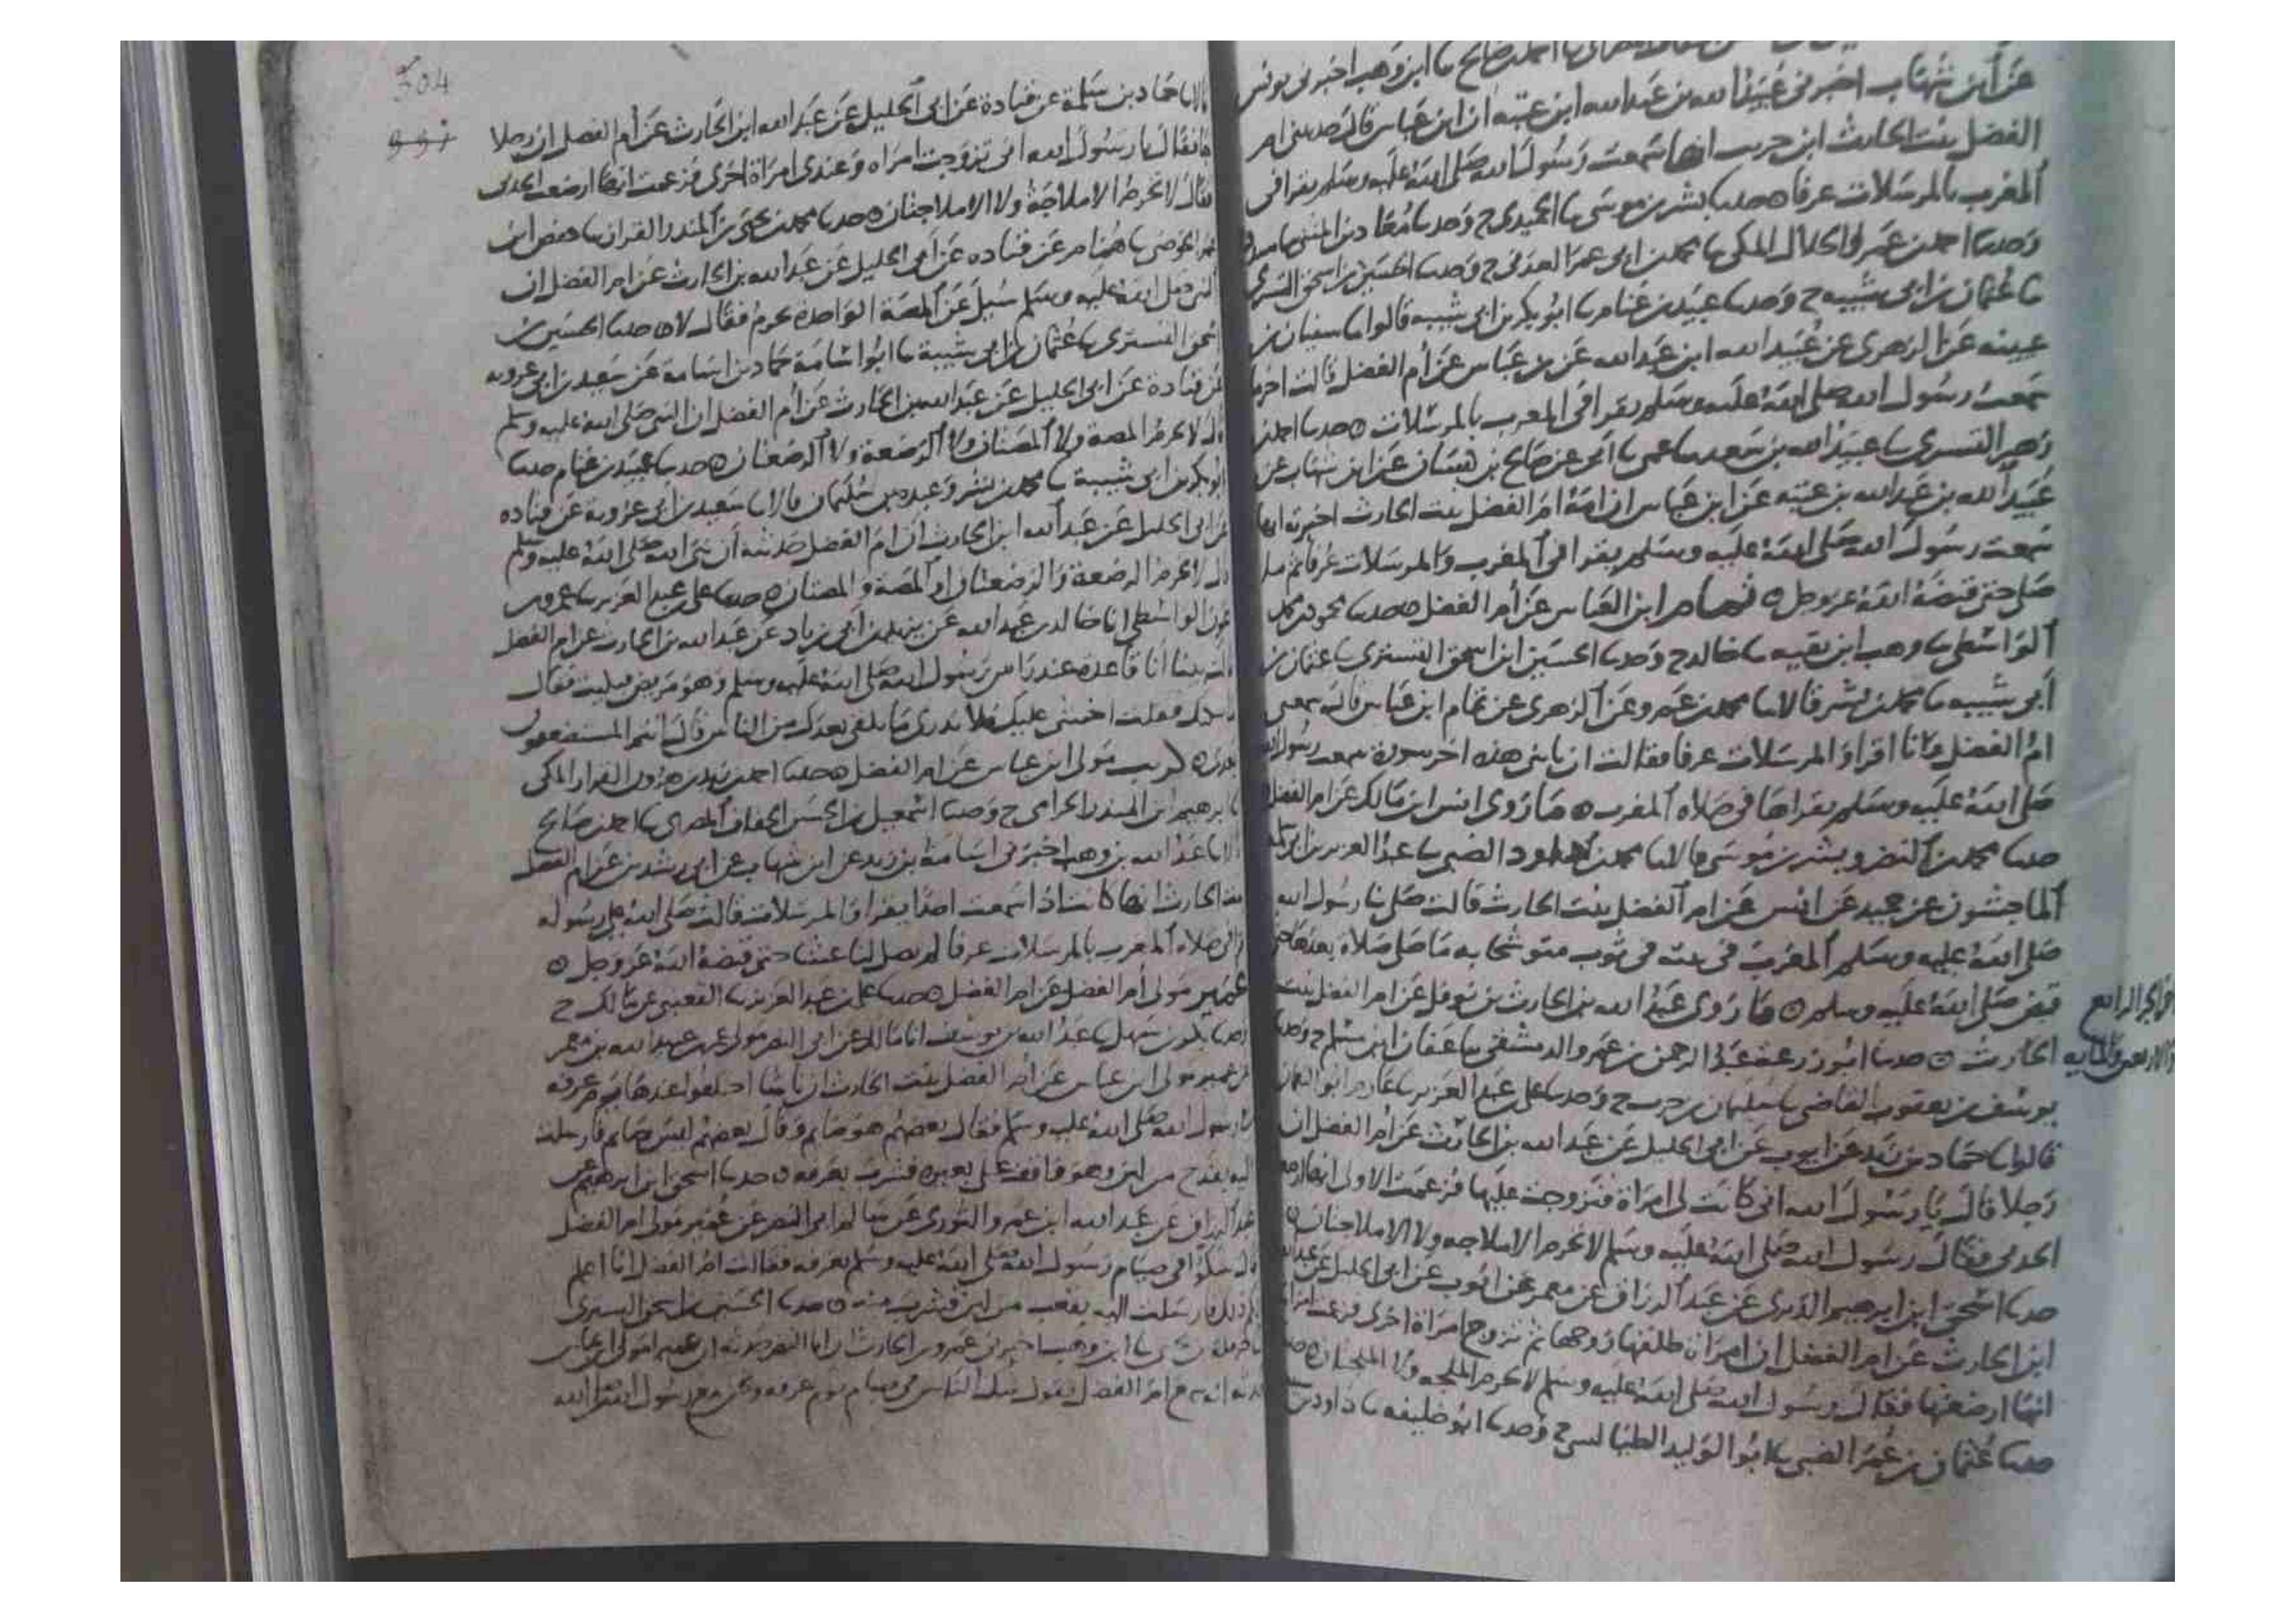 عن ابن شهاب اخبرنى عبيد الله بن عبد الله ابن عتبه ان ابن عباس قال حدثتنى ام
الفضل بنت الحارث ابن حرب انها سمعت رسول الله صلى الله عليه وسلم يقرا فى
المغرب بالمرسلات عرفا ٥ حدثنا بشر بن موسى نا الحميدى ح وحدثنا معاذ بن المثنى
وحدثنا احمد بن عمرو الخلال المكى نا محمد بن ابى عمر العدنى ح وحدثنا الحسين بن اسحق التسترى
نا عثمان بن ابى شيبه ح وحدثنا عبيد بن غنام نا ابو بكر بن ابى شيبه قالوا نا سفيان بن
عيينه عن الزهرى عن عبيد الله ابن عبد الله عن بن عباس عن أم الفضل قالت اخر ما
سمعت رسول الله صلى الله عليه وسلم يقرا فى المغرب بالمرسلات ٥ حدثنا احمد بن
زهير التسترى نا عبيد الله بن سعد نا عمى نا ابى عن صالح بن كيسان عن ابن شهاب عن
عبيد الله بن عبد الله بن عتبه عن ابن عباس ان امه ام الفضل بنت الحارث اخبرته انها
سمعت رسول الله صلى الله عليه وسلم يقرا فى المغرب والمرسلات عرفا ثم ما
صلى حتى قبضه الله عز وجل ٥ تمام ابن العباس عن أم الفضل ٥ حدثنا محمود بن محمد
الواسطى نا وهب ابن بقيه نا خالد ح وحدثنا الحسين ابن اسحق التسترى نا عثمان بن
أبى شيبه نا محمد بن بشر قالا نا محمد بن عمرو عن الزهرى عن تمام ابن عباس قال سمعتنى
ام الفضل وانا اقرا والمرسلات عرفا فقالت ان يا بنى هذه اخر سورة سمعت رسول الله
صلى الله عليه وسلم يقراها فى صلاه المغرب ٥ ما روى انس ابن مالك عن ام الفضل
حدثنا محمد بن النضر وبشر بن موسى قالا نا محمد بن داود الضبى نا عبد العزيز بن ابى سلمة
الماجشون عن حميد عن انس عن ام الفضل بنت الحارث قالت صلى بنا رسول الله
صلى الله عليه وسلم المغرب فى بيته فى ثوب متوشحا به ما صلى صلاه بعدها حتى
قبض صلى الله عليه وسلم ٥ ما روى عبد الله بن الحارث بن نوفل عن ام الفضل بنت
الحارث ٥ حدثنا ابو زرعة عبد الرحمن بن عمرو الدمشقى نا عفان ابن مسلم ح وحدثنا
يوسف بن يعقوب القاضى نا سليمان بن حرب ح وحدثنا على بن عبد العزيز نا عارم ابو النعمان
قالوا نا حماد بن زيد عن ايوب عن ابى الخليل عن عبد الله بن الحارث عن أم الفضل ان
رجلا قال يا رسول الله انى كانت لى امراة فتزوجت عليها فزعمت الاولى انها ارضعت
الحدثى فقال رسول الله صلى الله عليه وسلم لا تحرم الاملاجه ولا الاملاجتان ٥
حدثنا اسحق ابن ابرهيم الدبرى عن عبد الرزاق عن معمر عن ايوب عن ابى الخليل عن عبد الله
ابن الحارث عن ام الفضل ان امراة طلقها زوجها ثم تزوج امراة اخرى فزعمت امراته
انها ارضعتها فقال رسول الله صلى الله عليه وسلم لا تحرم الملجه ولا الملجتان ٥
حدثنا عثمان بن عمر الضبى نا ابو الوليد الطيالسى ح وحدثنا ابو خليفه نا داود بن
اخر الجز الرابع
والاربعين والمايه
304
قالا نا حماد بن سلمة عن قتادة عن ابى الخليل عن عبد الله ابن الحارث عن أم الفضل ان رجلا
فقال يا رسول الله انى تزوجت امراه وعندى امراة اخرى فزعمت انها ارضعت الحدثى
فقال لا تحرم الاملاجة ولا الاملاجتان ٥ حدثنا محمد بن يحيى بن المنذر القزاز نا حفص ابن
عمر الحوضى نا همام عن قتاده عن ابى الخليل عن عبد الله بن الحارث عن ام الفضل ان
النبى صلى الله عليه وسلم سيل عن المصة الواحدة تحرم فقال لا ٥ حدثنا الحسين بن
اسحق التسترى نا عثمان بن ابى شيبة نا ابو اسامة حماد بن اسامة عن سعيد بن ابى عروبه
عن قتادة عن ابى الخليل عن عبد الله بن الحارث عن أم الفضل ان النبى صلى الله عليه وسلم
قال لا تحرم المصة ولا المصتان ولا الرضعة ولا الرضعتان ٥ حدثنا عبيد بن غنام حدثنا
ابو بكر بن ابى شيبة نا محمد بن بشر وعبدة بن سليمان قالا نا سعيد بن ابى عروبة عن قتاده
عن ابى الخليل عن عبد الله ابن الحارث ان ام الفضل حدثته أن نبى الله صلى الله عليه وسلم
قال لا تحرم الرضعة والرضعتان او المصة والمصتان ٥ حدثنا على بن عبد العزيز نا عمرو بن
عون الواسطى انا خالد بن عبد الله عن يزيد بن أبى زياد عن عبد الله بن الحارث عن ام الفضل
قالت بينا انا قاعدة عند راس رسول الله صلى الله عليه وسلم وهو مريض فبكيت فقال
ما يبكيك فقلت اخشى عليك فلا ندرى ما نلقى بعدك من الناس قال انتم المستضعفون
بعدى ٥ كريب مولى ابن عباس عن ام الفضل ٥ حدثنا احمد بن زيد بن هرون القزاز المكى
نا ابرهيم ابن المنذر الحزامى ح وحدثنا اسمعيل بن الحسن الخفاف المصرى نا احمد بن صالح
قالا نا عبد الله بن وهب اخبرنى اسامة بن زيد عن ابن شهاب عن ابى رشدين عن ام الفضل
بنت الحارث انها كانت اذا سمعت احدا يقرا والمرسلات قالت صلى الله على رسوله
قرا فى صلاه المغرب بالمرسلات عرفا لم يصل لنا عشا حتى قبضه الله عز وجل ٥
عمير مولى أم الفضل عن ام الفضل ٥ حدثنا على بن عبد العزيز نا القعنبى عن مالك ح
وحدثنا بكر بن سهل نا عبد الله بن يوسف انا مالك عن ابى النضر مولى عمر بن عبيد الله بن معمر
عن عمير مولى ابن عباس عن أم الفضل بنت الحارث ان ناسا اختلفوا عندها يوم عرفه
فى رسول الله صلى الله عليه وسلم فقال بعضهم هو صايم وقال بعضهم ليس صايم فارسلت
اليه بقدح من لبن وهو واقف على بعيره فشرب بعرفه ٥ حدثنا اسحق ابن ابرهيم عن
عبد الرزاق عن عبد الله ابن عمر والثورى عن سالم ابى النضر عن عمير مولى ام الفضل
قال شكوا فى صيام رسول الله صلى الله عليه وسلم بعرفه فقالت ام الفضل انا اعلم
لكم ذلك فارسلت اليه بقعب من لبن فشرب منه ٥ حدثنا الحسين بن اسحق التسترى
نا حرملة بن يحيى نا ابن وهب اخبرنى عمرو بن الحارث ان ابا النضر حدثه ان عميرا مولى ابن عباس
حدثه انه سمع ام الفضل تقول شك الناس فى صيام يوم عرفه ونحن مع رسول الله